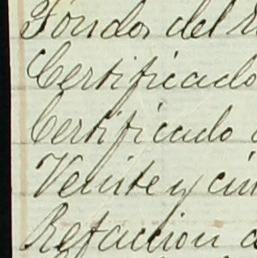 Fondos del
Certificado
Certificado
Veinte y cin
Refaccion